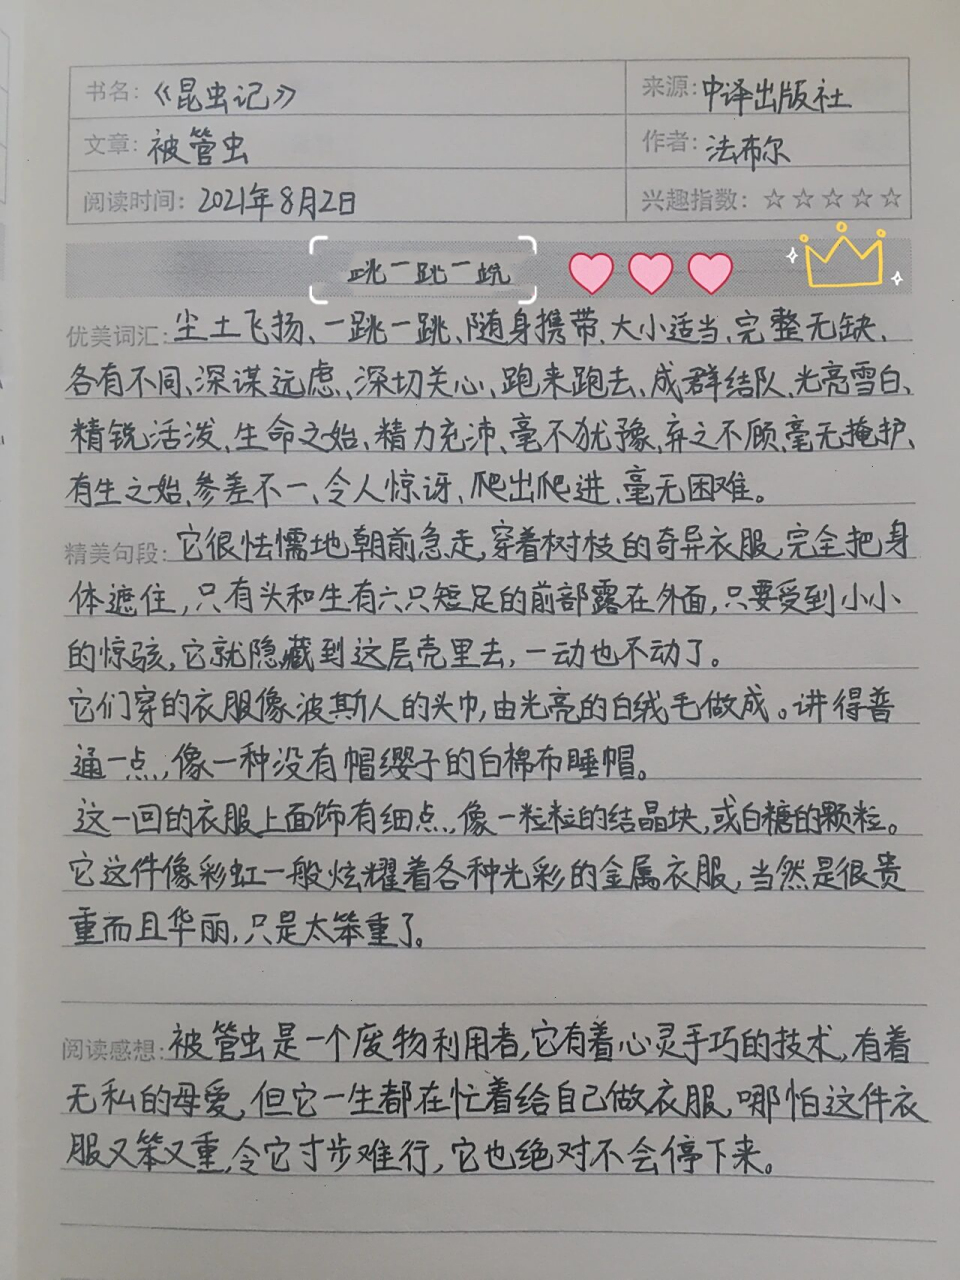 书名：《昆虫记》 来源：中译出版社
文章：被管虫 作者：法布尔
阅读时间：2021年8月2日 兴趣指数：☆☆☆☆☆
跳一跳一跳
优美词汇：尘土飞扬、一跳一跳、随身携带、大小适当、完整无缺、
各有不同、深谋远虑、深切关心、跑来跑去、成群结队、光亮雪白、
精锐活泼、生命之始、精力充沛、毫不犹豫、弃之不顾、毫无掩护、
有生之始、参差不一、令人惊讶、爬出爬进、毫无困难。
精美句段：它很怯懦地朝前急走，穿着树枝的奇异衣服，完全把身
体遮住，只有头和生有六只短足的前部露在外面，只要受到小小
的惊骇，它就隐藏到这层壳里去，一动也不动了。
它们穿的衣服像波斯人的头巾，由光亮的白绒毛做成。讲得普
通一点，像一种没有帽缨子的白棉布睡帽。
这一回的衣服上面饰有细点，像一粒粒的结晶块，或白糖的颗粒。
它这件像彩虹一般炫耀着各种光彩的金属衣服，当然是很贵
重而且华丽，只是太笨重了。
阅读感想：被管虫是一个废物利用者，它有着心灵手巧的技术，有着
无私的母爱，但它一生都在忙着给自己做衣服，哪怕这件衣
服又笨又重，令它寸步难行，它也绝对不会停下来。